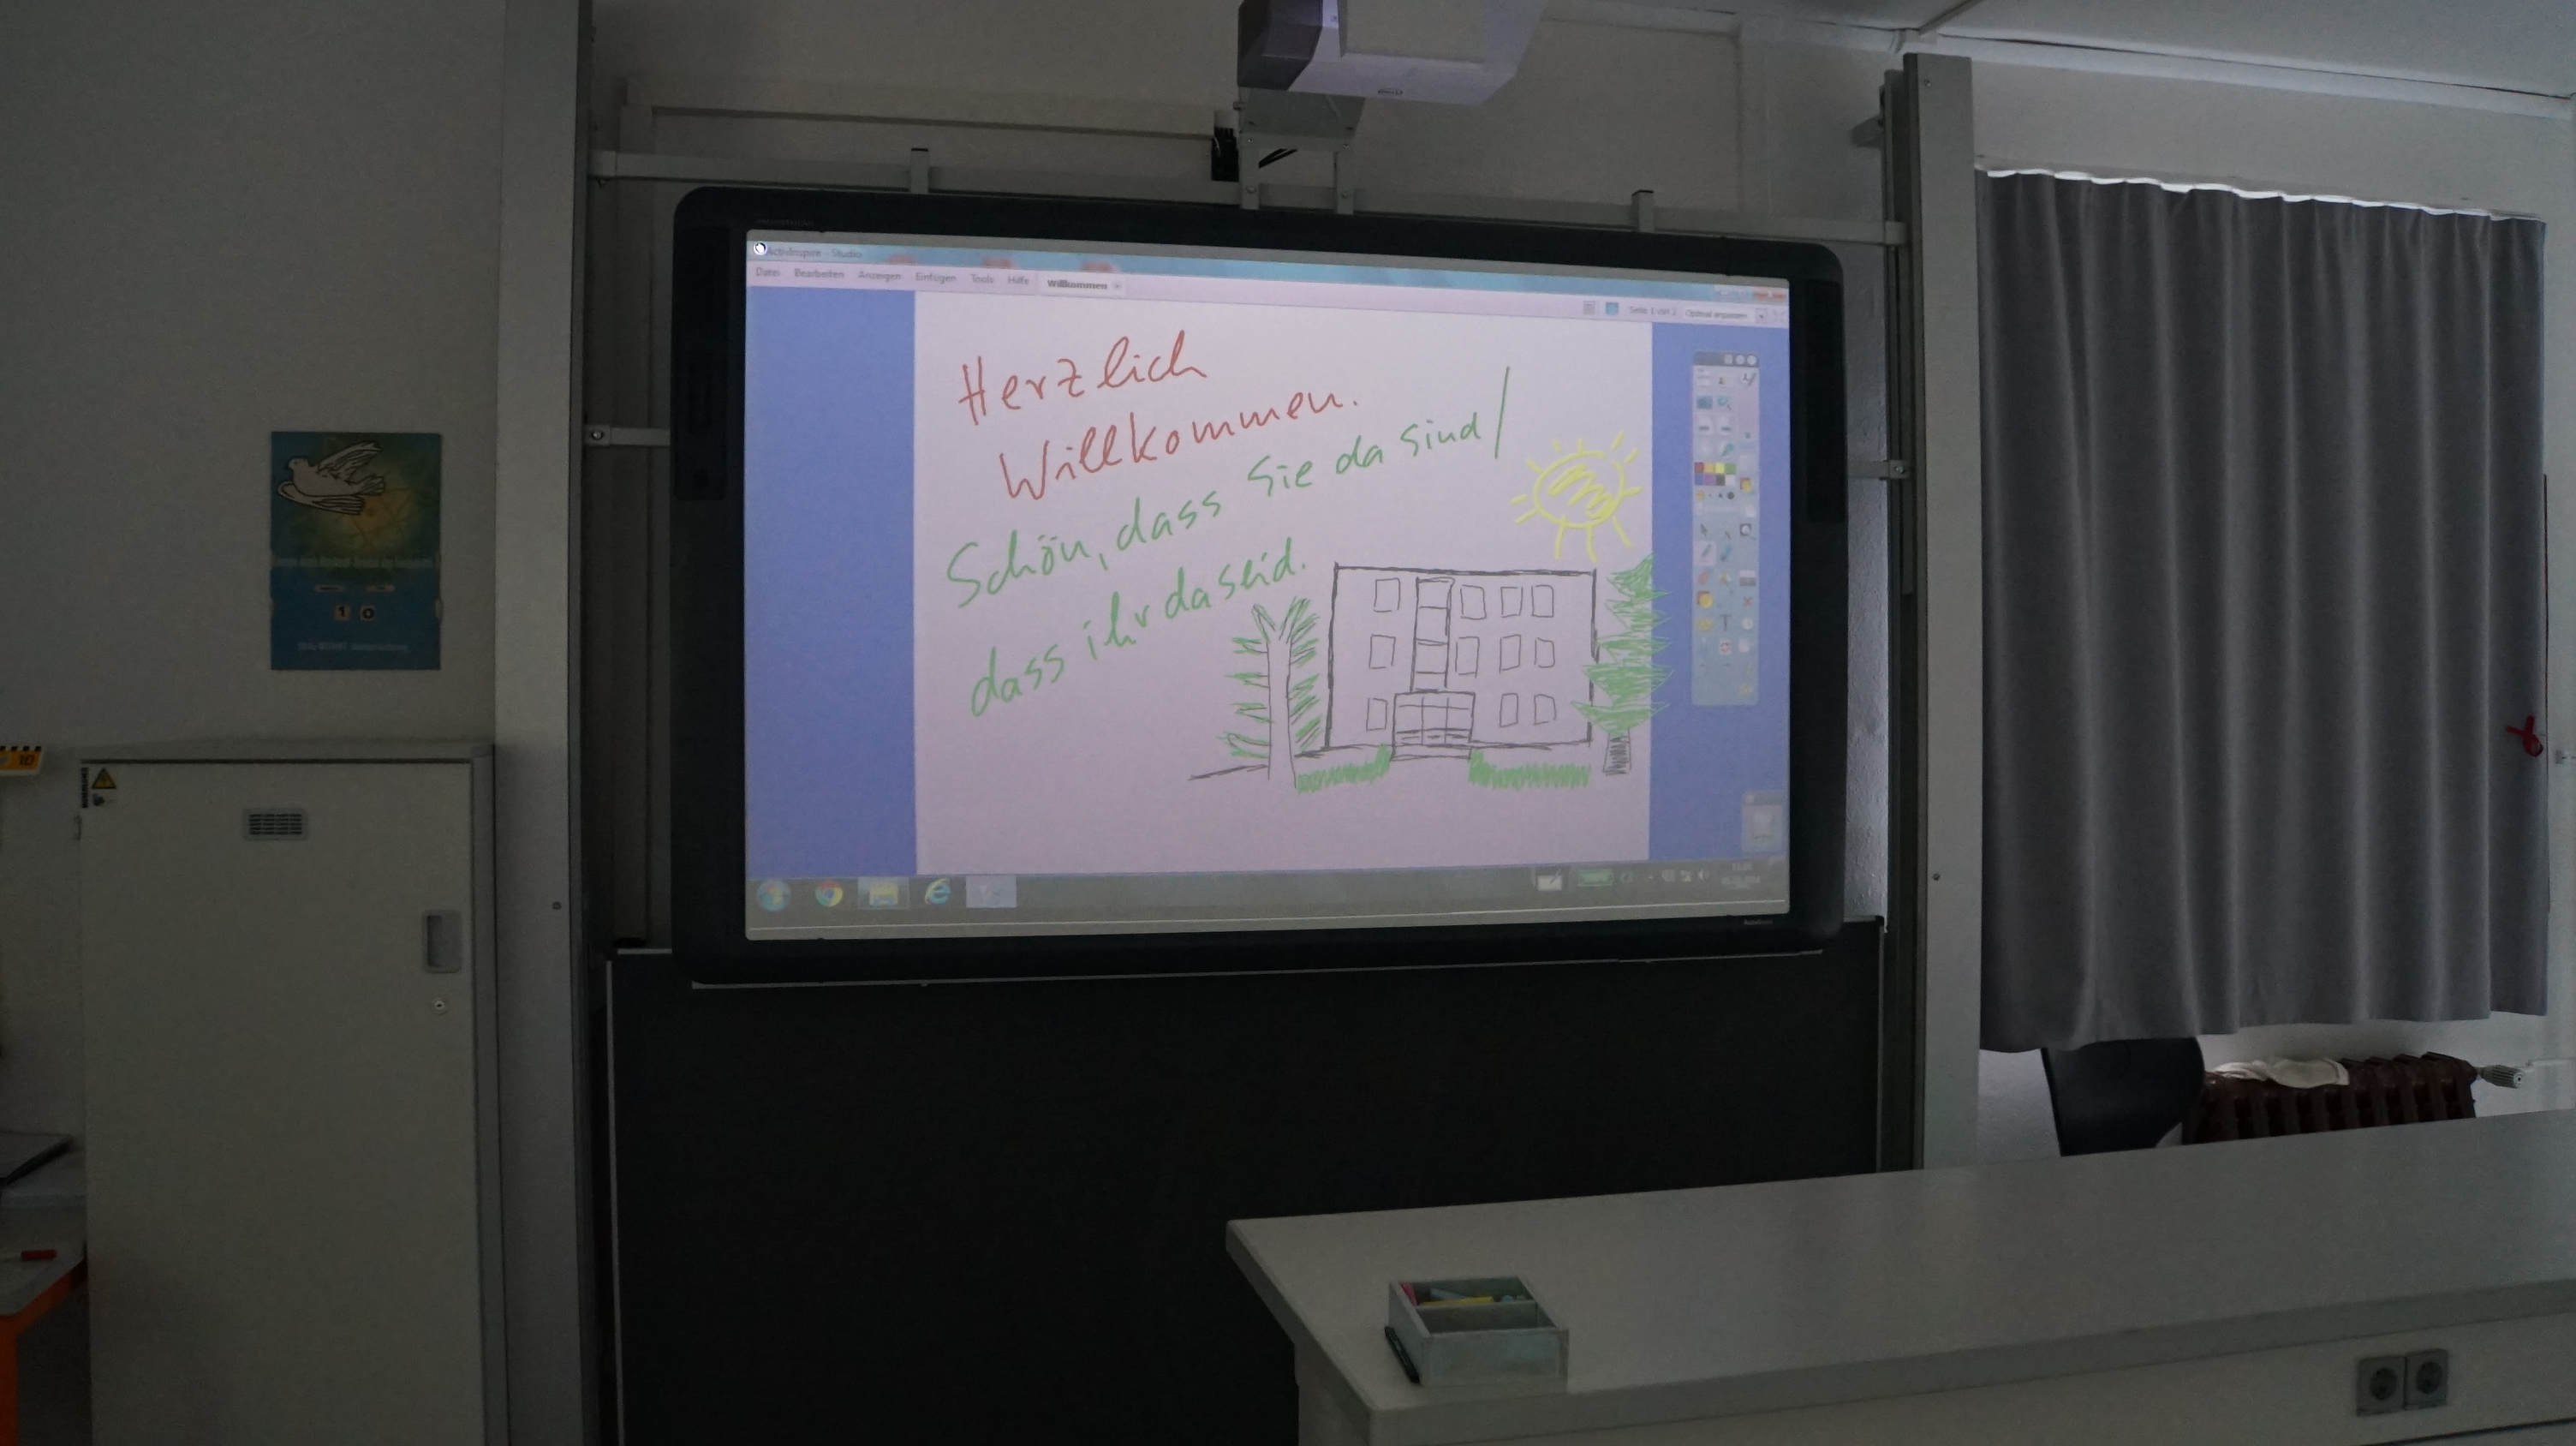 ActivInspire - Studio
Datei Bearbeiten Anzeigen Einfügen Tools Hilfe Willkommen
Seite 1 von 2 Optimal anpassen
Herzlich
Willkommen.
Schön, dass Sie da sind /
dass ihr da seid.
1 0
10